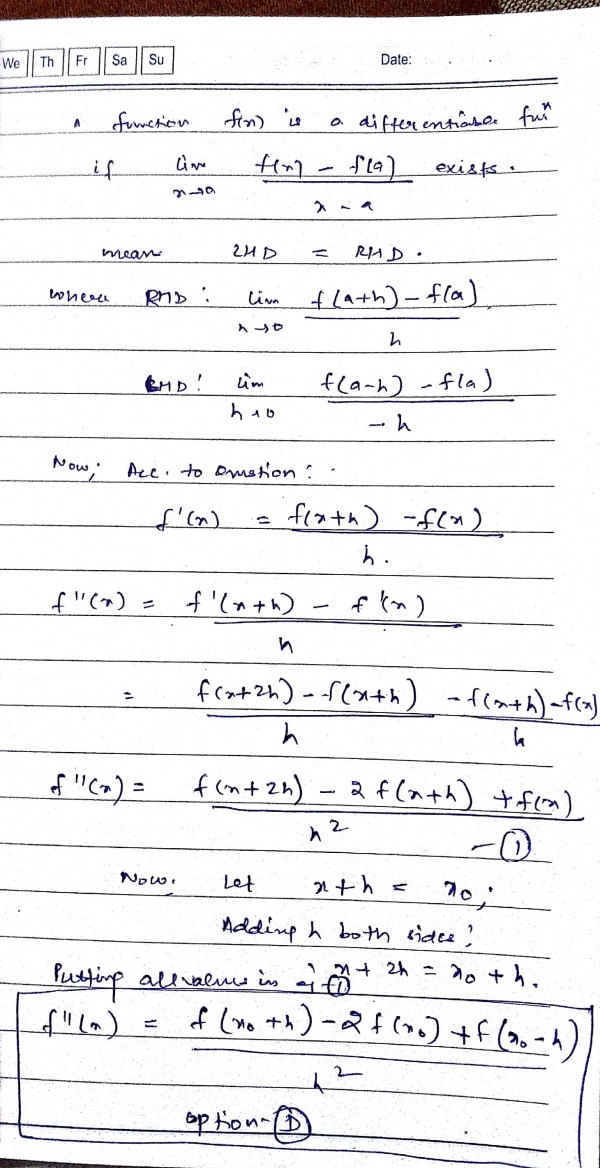 We Th Fr Sa Su Date:
A function f(x) is a differentiable fuⁿ
if lim x→a f(x) - f(a) / x - a exists.
mean LHD = RHD.
where RHD: lim h→0 f(a+h) - f(a) / h
LHD: lim h→0 f(a-h) - f(a) / -h
Now; Acc. to Question:
f'(x) = f(x+h) - f(x) / h.
f''(x) = f'(x+h) - f'(x) / h
= f(x+2h) - f(x+h) / h - f(x+h) - f(x) / h
f''(x) = f(x+2h) - 2f(x+h) + f(x) / h² - ①
Now. Let x+h = x₀;
Adding h both sides;
x+2h = x₀+h.
Putting all values in ①
f''(x) = f(x₀+h) - 2f(x₀) + f(x₀-h) / h²
option-Ⓓ